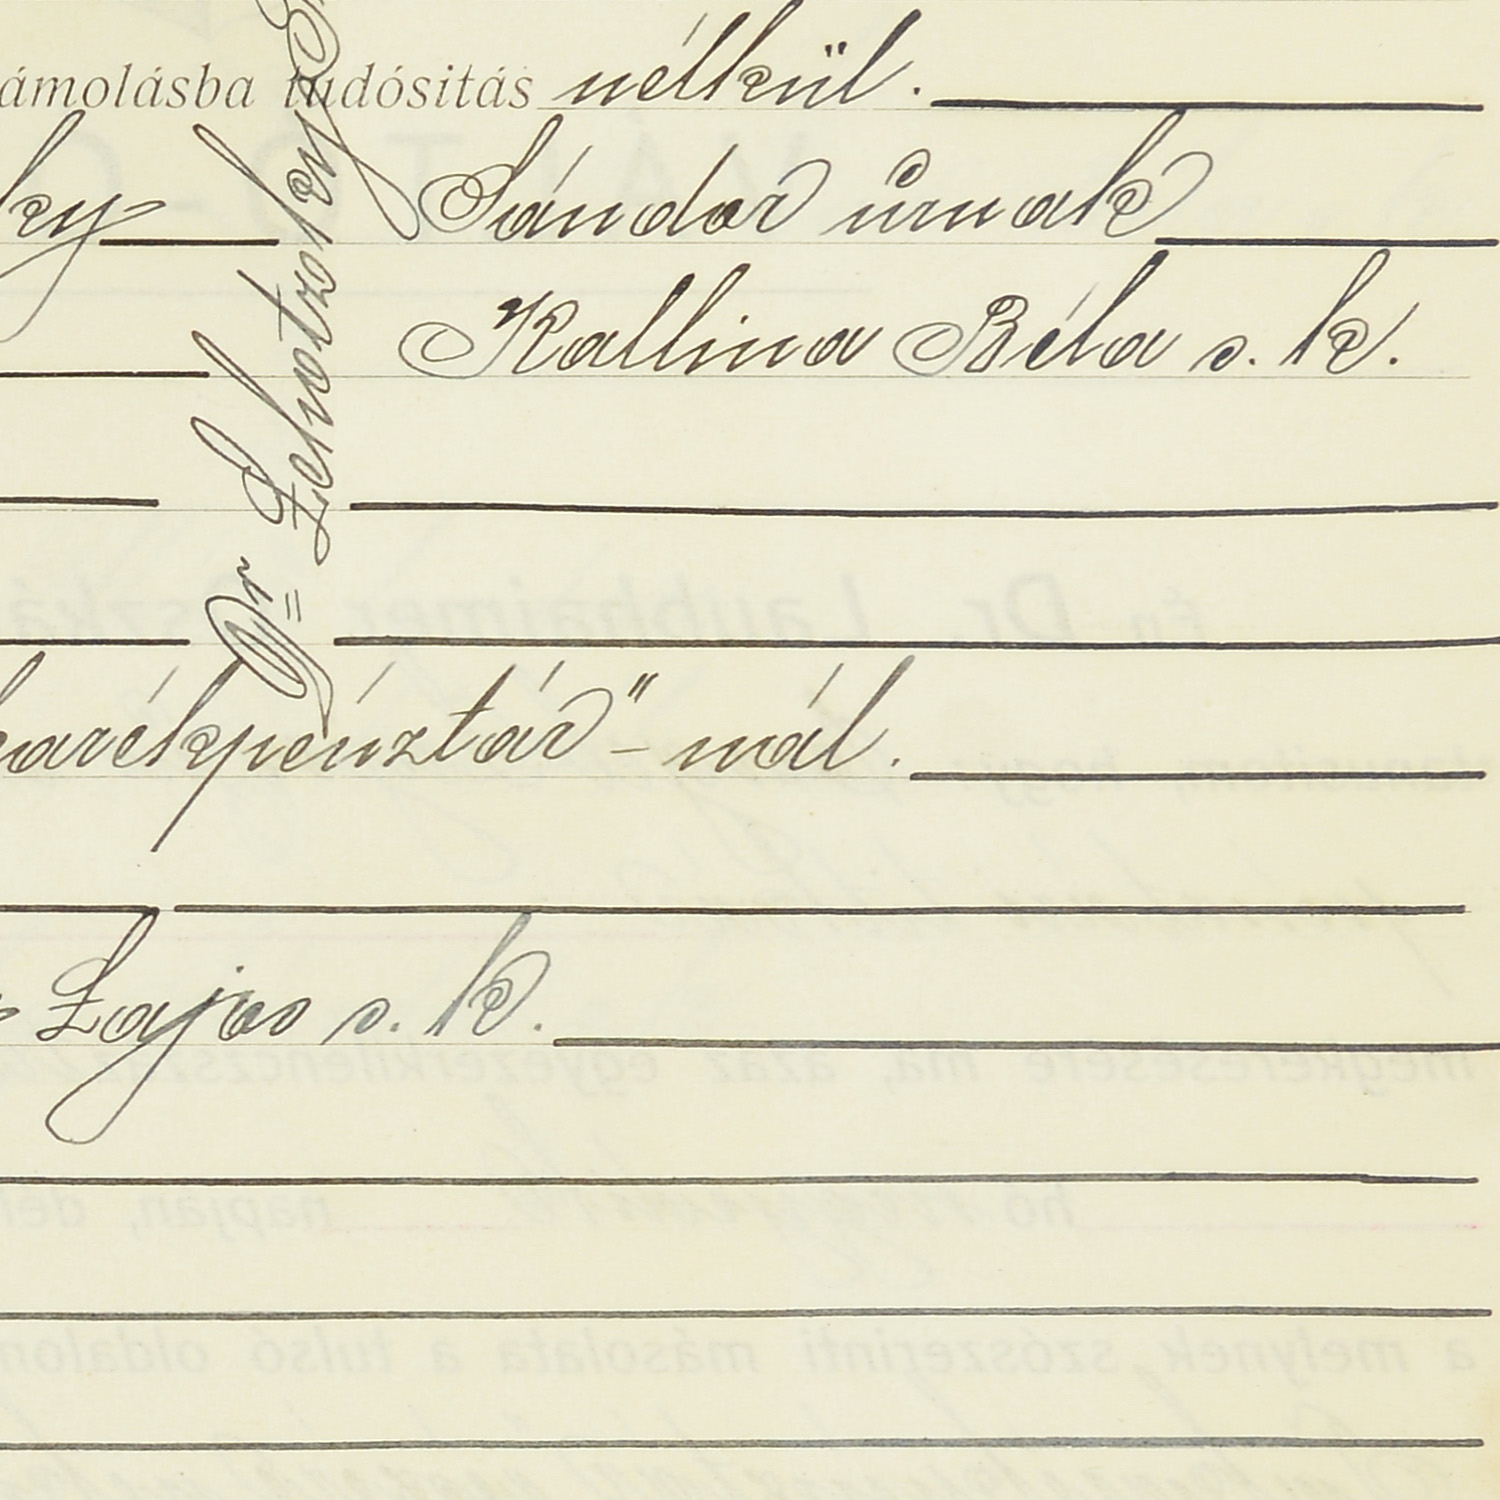 ámolásba tudósitás nélkül.
ky Sándor úrnak
Kallina Béla s. k.
Dr Lehotzky
arékpénztár" - nál.
Lajos s. k.